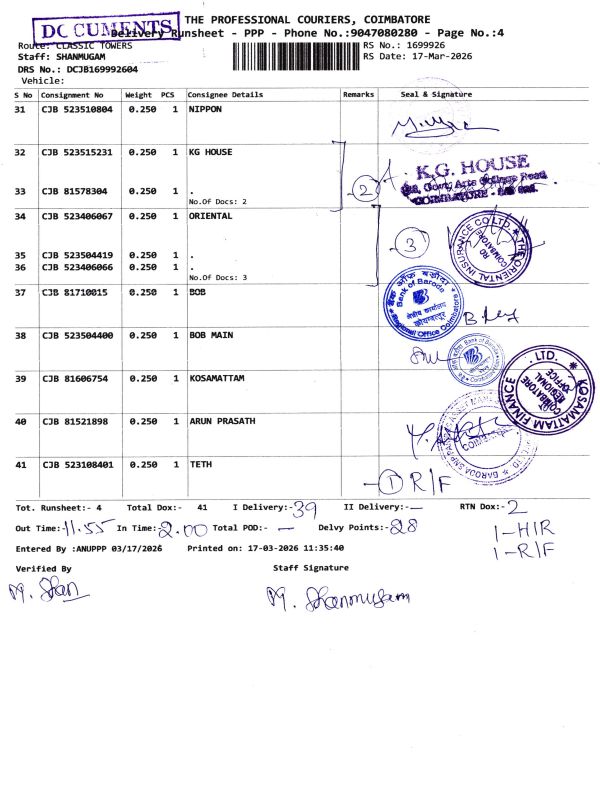 THE PROFESSIONAL COURIERS, COIMBATORE
DOCUMENTS
Delivery Runsheet - PPP - Phone No.:9047080280 - Page No.:4
Route: CLASSIC TOWERS
RS No.: 1699926
Staff: SHANMUGAM
RS Date: 17-Mar-2026
DRS No.: DCJB169992604
Vehicle:
S No Consignment No Weight PCS Consignee Details Remarks Seal & Signature
31 CJB 523510804 0.250 1 NIPPON
32 CJB 523515231 0.250 1 KG HOUSE
K.G. HOUSE
Govt. Arts College Road
COIMBATORE
2
33 CJB 81578304 0.250 1 .
No.Of Docs: 2
34 CJB 523406067 0.250 1 ORIENTAL
THE ORIENTAL INSURANCE CO LTD
RO COIMBATORE
3
35 CJB 523504419 0.250 1 .
36 CJB 523406066 0.250 1 .
No.Of Docs: 3
37 CJB 81710015 0.250 1 BOB
बैंक ऑफ़ बड़ौदा
Bank of Baroda
क्षेत्रीय कार्यालय
कोयम्बत्तूर
Regional Office Coimbatore
38 CJB 523504400 0.250 1 BOB MAIN
Bank of Baroda
39 CJB 81606754 0.250 1 KOSAMATTAM
KOSAMATTAM FINANCE LTD.
COIMBATORE REGIONAL OFFICE
40 CJB 81521898 0.250 1 ARUN PRASATH
41 CJB 523108401 0.250 1 TETH
1 R/F
Tot. Runsheet:- 4 Total Dox:- 41 I Delivery:- 39 II Delivery:- — RTN Dox:- 2
Out Time:- 11.55 In Time:- 2.00 Total POD:- — Delvy Points:- 28
1-H/R
1-R/F
Entered By :ANUPPP 03/17/2026 Printed on: 17-03-2026 11:35:40
Verified By Staff Signature
M. Shan
M. Shanmugam